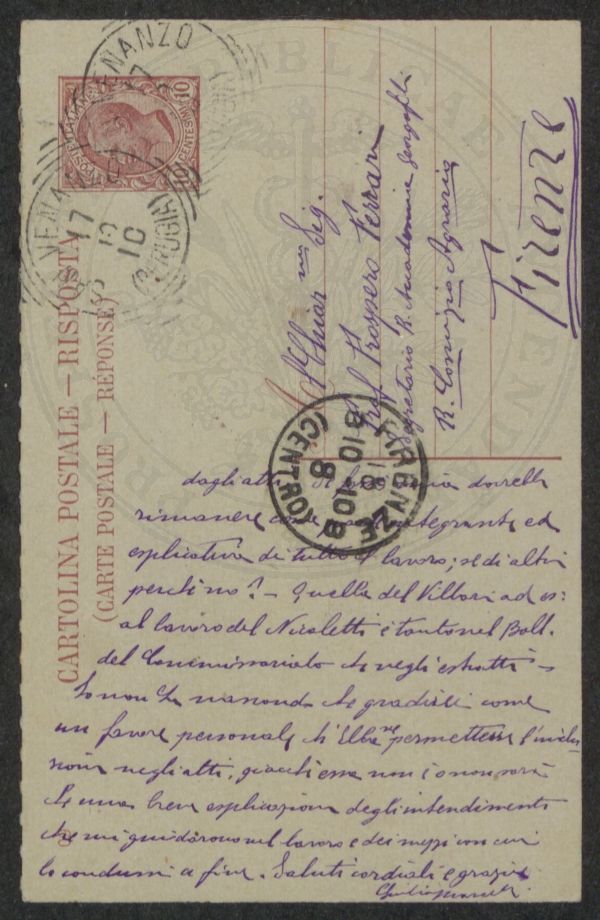 CARTOLINA POSTALE — RISPOSTA
(CARTE POSTALE — RÉPONSE)
POSTE ITALIANE
10 CENTESIMI 10
S. VENANZO
17
10
10
(PERUGIA)
Chiar mo Sig.
Prof. Prospero Ferrari
Segretario R. Accademia Georgofili
R. Comizio Agrario
Firenze
FIRENZE
(CENTRO)
8
10 10
dagli atti. La
dovrebbe
rimanere come parte integrante ed
esplicativa di tutto il lavoro; se di altri
perchè no? — Quella del Villari ad es:
al lavoro del Nicoletti è tanto nel Boll.
del Commissariato che negli estratti —
Io non Le nascondo che gradirei come
un favore personale
permettesse l'inclu
sione negli atti, giacchè essa non è o non sarà
che una breve esplicazione degli intendimenti
che mi guidarono nel lavoro e dei mezzi con cui
lo condussi a fine. Saluti cordiali e grazie